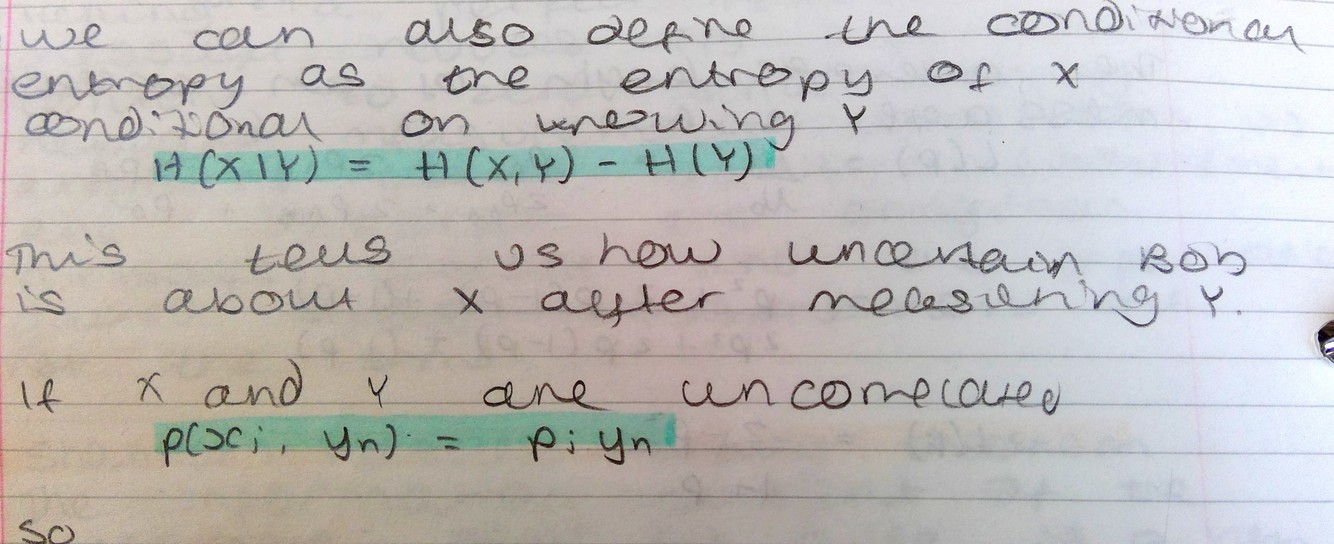 we can also define the conditional
entropy as the entropy of X
conditional on knowing Y
H(X|Y) = H(X,Y) - H(Y)
This tells us how uncertain Bob
is about X after measuring Y.
If X and Y are uncorrelated
p(xi, yn) = pi yn
so